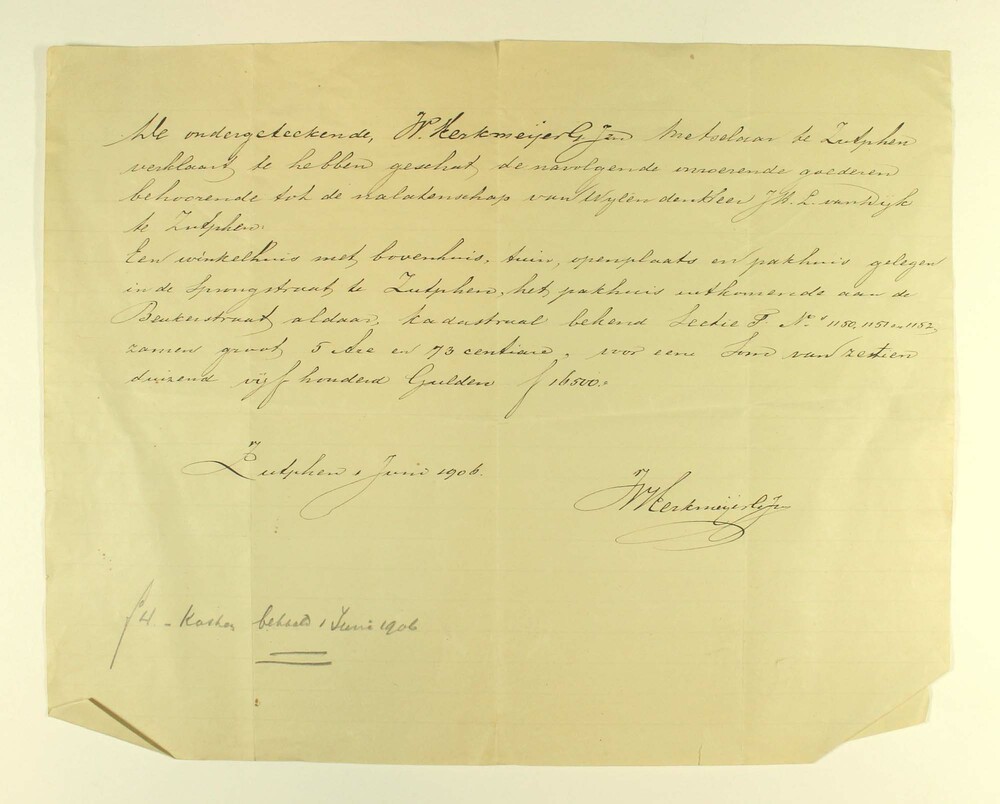 De ondergeteekende, W. Kerkmeijer GJzn Metselaar te Zutphen
verklaart te hebben geschat de navolgende onroerende goederen
behoorende tot de nalatenschap van Wylen den Heer J.H. L. van Dijk
te Zutphen.
Een winkelhuis met bovenhuis, tuin, openplaats en pakhuis gelegen
in de Sprongstraat te Zutphen, het pakhuis uitkomende aan de
Beukerstraat aldaar, kadastraal bekend Sectie F. No. 1150, 1151 en 1152,
zamen groot 5 Are en 73 centiare, voor eene Som van zestien
duizend vijf honderd Gulden f 16500.-
Zutphen 1 Juni 1906.
W Kerkmeijer GJzn
f 4.- Kosten betaald 1 Juni 1906